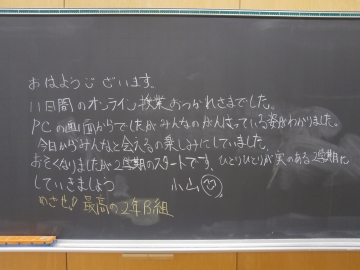 おはようございます。
11日間のオンライン授業おつかれさまでした。
PCの画面からでしたがみんなのがんばっている姿がわかりました。
今日からみんなと会えるの楽しみにしていました。
おそくなりましたが2学期のスタートです。ひとりひとりが実のある2学期に
していきましょう 小山
めざせ！最高の2年B組